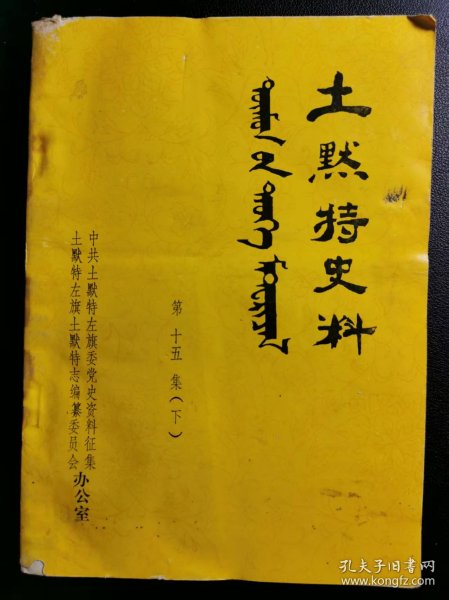 土默特史料
第十五集（下）
中共土默特左旗委党史资料征集
土默特左旗土默特志编纂委员会
办公室
孔夫子旧书网
www.kongfz.com